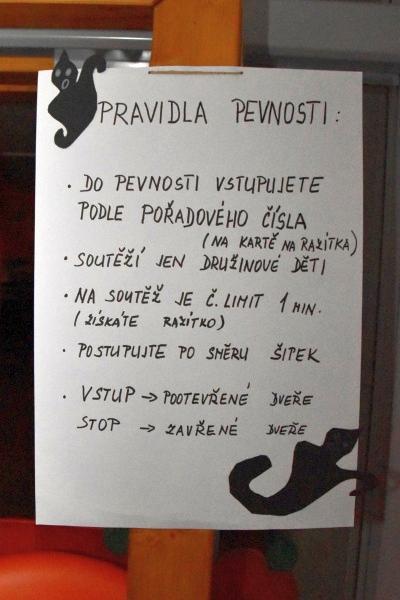 PRAVIDLA PEVNOSTI:
· DO PEVNOSTI VSTUPUJETE
PODLE POŘADOVÉHO ČÍSLA
(NA KARTĚ NA RAZÍTKA)
· SOUTĚŽÍ JEN DRUŽINOVÉ DĚTI
· NA SOUTĚŽ JE Č. LIMIT 1 MIN.
(ZÍSKÁTE RAZÍTKO)
· POSTUPUJTE PO SMĚRU ŠIPEK
· VSTUP → POOTEVŘENÉ DVEŘE
STOP → ZAVŘENÉ DVEŘE